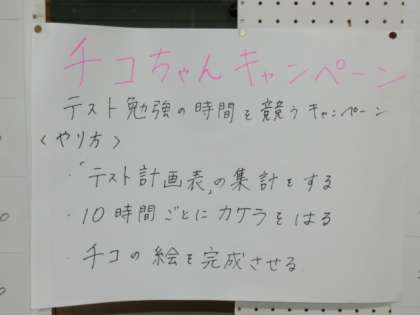 チコちゃんキャンペーン
テスト勉強の時間を競うキャンペーン
＜やり方＞
・「テスト計画表」の集計をする
・10時間ごとにカケラをはる
・チコの絵を完成させる